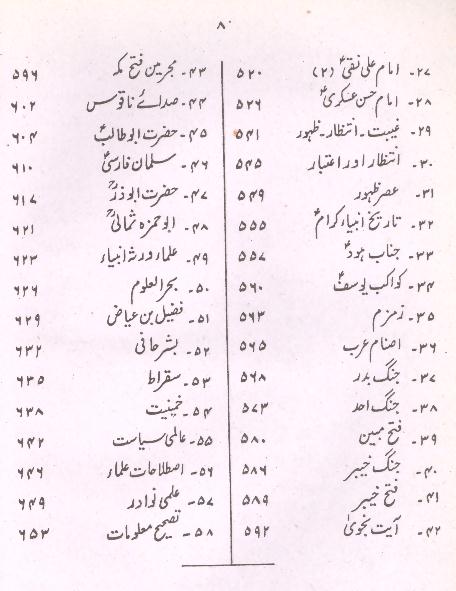 ۸
۲۷۔ امام علی نقیؑ (۲) ۵۲۰
۲۸۔ امام حسن عسکریؑ ۵۲۶
۲۹۔ غیبت۔ انتظار۔ ظہور ۵۴۱
۳۰۔ انتظار اور اعتبار ۵۴۵
۳۱۔ عصر ظہور ۵۴۹
۳۲۔ تاریخ انبیاء کرامؑ ۵۵۵
۳۳۔ جناب ہودؑ ۵۵۷
۳۴۔ کواکب یوسفؑ ۵۶۰
۳۵۔ زمزم ۵۶۳
۳۶۔ اصنام عرب ۵۶۵
۳۷۔ جنگ بدر ۵۶۸
۳۸۔ جنگ احد ۵۷۳
۳۹۔ فتح مبین ۵۸۰
۴۰۔ جنگ خیبر ۵۸۶
۴۱۔ فتح خیبر ۵۸۹
۴۲۔ آیت نجویٰ ۵۹۲
۴۳۔ مجرمین فتح مکہ ۵۹۶
۴۴۔ صدائے ناقوس ۶۰۲
۴۵۔ حضرت ابوطالبؑ ۶۰۴
۴۶۔ سلمان فارسیؑ ۶۱۰
۴۷۔ حضرت ابوذرؒ ۶۱۷
۴۸۔ ابوحمزہ ثمالیؒ ۶۲۱
۴۹۔ علماء ورثۂ انبیاء ۶۲۳
۵۰۔ بحرالعلوم ۶۲۶
۵۱۔ فضیل بن عیاض ۶۲۹
۵۲۔ بشر حافی ۶۳۲
۵۳۔ سقراط ۶۳۵
۵۴۔ خمینیت ۶۳۸
۵۵۔ عالمی سیاست ۶۴۲
۵۶۔ اصطلاحات علماء ۶۴۶
۵۷۔ علمی نوادر ۶۴۹
۵۸۔ تصحیح معلومات ۶۵۳